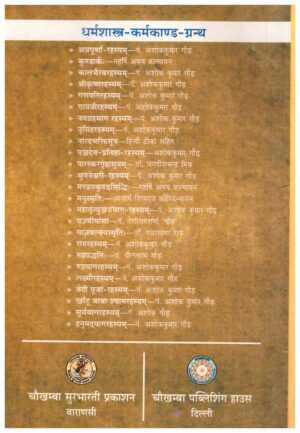 धर्मशास्त्र-कर्मकाण्ड-ग्रन्थ
अन्नपूर्णा-रहस्यम्—पं. अशोककुमार गौड़
कुण्डार्कः—महर्षि अभय कात्यायन
कालभैरवरहस्यम्—पं. अशोककुमार गौड़
श्रीकृष्णरहस्यम्—पं. अशोककुमार गौड़
गणपतिरहस्यम्—पं. अशोक कुमार गौड़
गायत्रीरहस्यम्—पं. अशोककुमार गौड़
नवग्रहयाग रहस्यम्—पं. अशोक कुमार गौड़
नृसिंहरहस्यम्—पं. अशोककुमार गौड़
नारदभक्तिसूत्र—हिन्दी टीका सहित
पञ्चदेव-प्रतिष्ठा-रहस्यम्—पं. अशोककुमार गौड़
पारस्करगृह्यसूत्रम्—डॉ. जगदीशचन्द्र मिश्र
भुवनेश्वरी-रहस्यम्—पं. अशोक कुमार गौड़
मण्डपकुण्डसिद्धिः—महर्षि अभय कात्यायन
मनुस्मृतिः—आचार्य शिवराज कौण्डिन्न्यायन
महामृत्युञ्जययाग-रहस्यम्—पं. अशोक कुमार गौड़
यज्ञमीमांसा—पं. वेणीरामशर्मा गौड़
याज्ञवल्क्यस्मृतिः—डॉ. गङ्गासागर राय
रामरहस्यम्—पं. अशोककुमार गौड़
रुद्रपद्धतिः—पं. दौलतराम गौड़
रुद्रयागरहस्यम्—पं. अशोककुमार गौड़
लक्ष्मीरहस्यम्—पं. अशोककुमार गौड़
वेदी पूजा-रहस्यम्—पं. अशोक कुमार गौड़
खाँटू बाबा श्यामरहस्यम्—पं. अशोककुमार गौड़
सूर्ययागरहस्यम्—पं. अशोक गौड़
हनुमद्यागरहस्यम्—पं. अशोककुमार गौड़
चौखम्बा सुरभारती प्रकाशन
वाराणसी
चौखम्बा पब्लिशिंग हाउस
दिल्ली